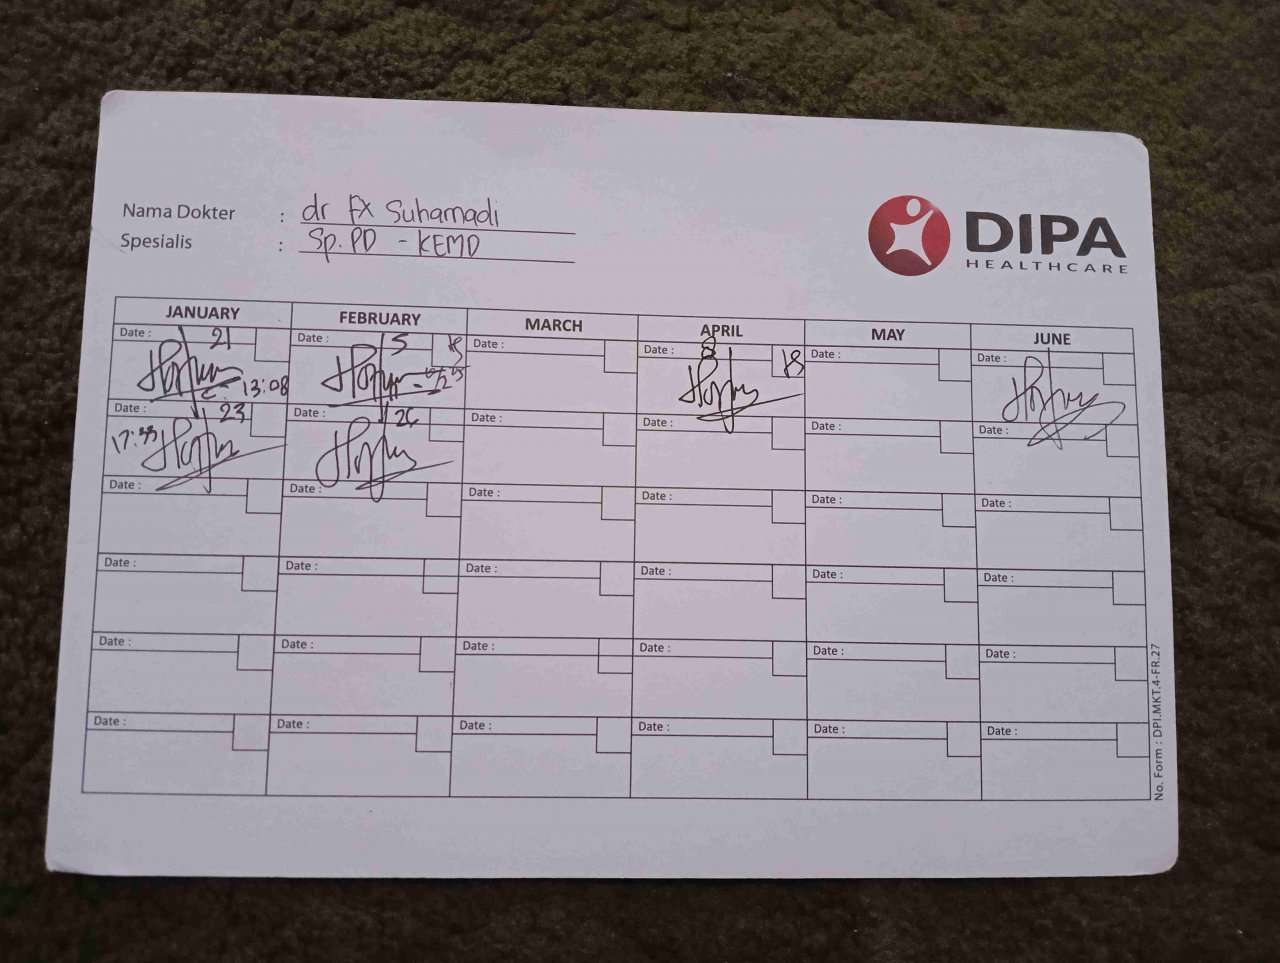 Nama Dokter : dr FX Suhamadi
Spesialis : Sp.PD - KEMD
DIPA
HEALTHCARE
JANUARY FEBRUARY MARCH APRIL MAY JUNE
Date : 21 Date : 5 Date : Date : 8 Date : Date :
13:08
Date : 23 Date : 26 Date : Date : Date : Date :
17:33
Date : Date : Date : Date : Date : Date :
Date : Date : Date : Date : Date : Date :
Date : Date : Date : Date : Date : Date :
Date : Date : Date : Date : Date : Date :
No. Form : DPI.MKT.4-FR.27